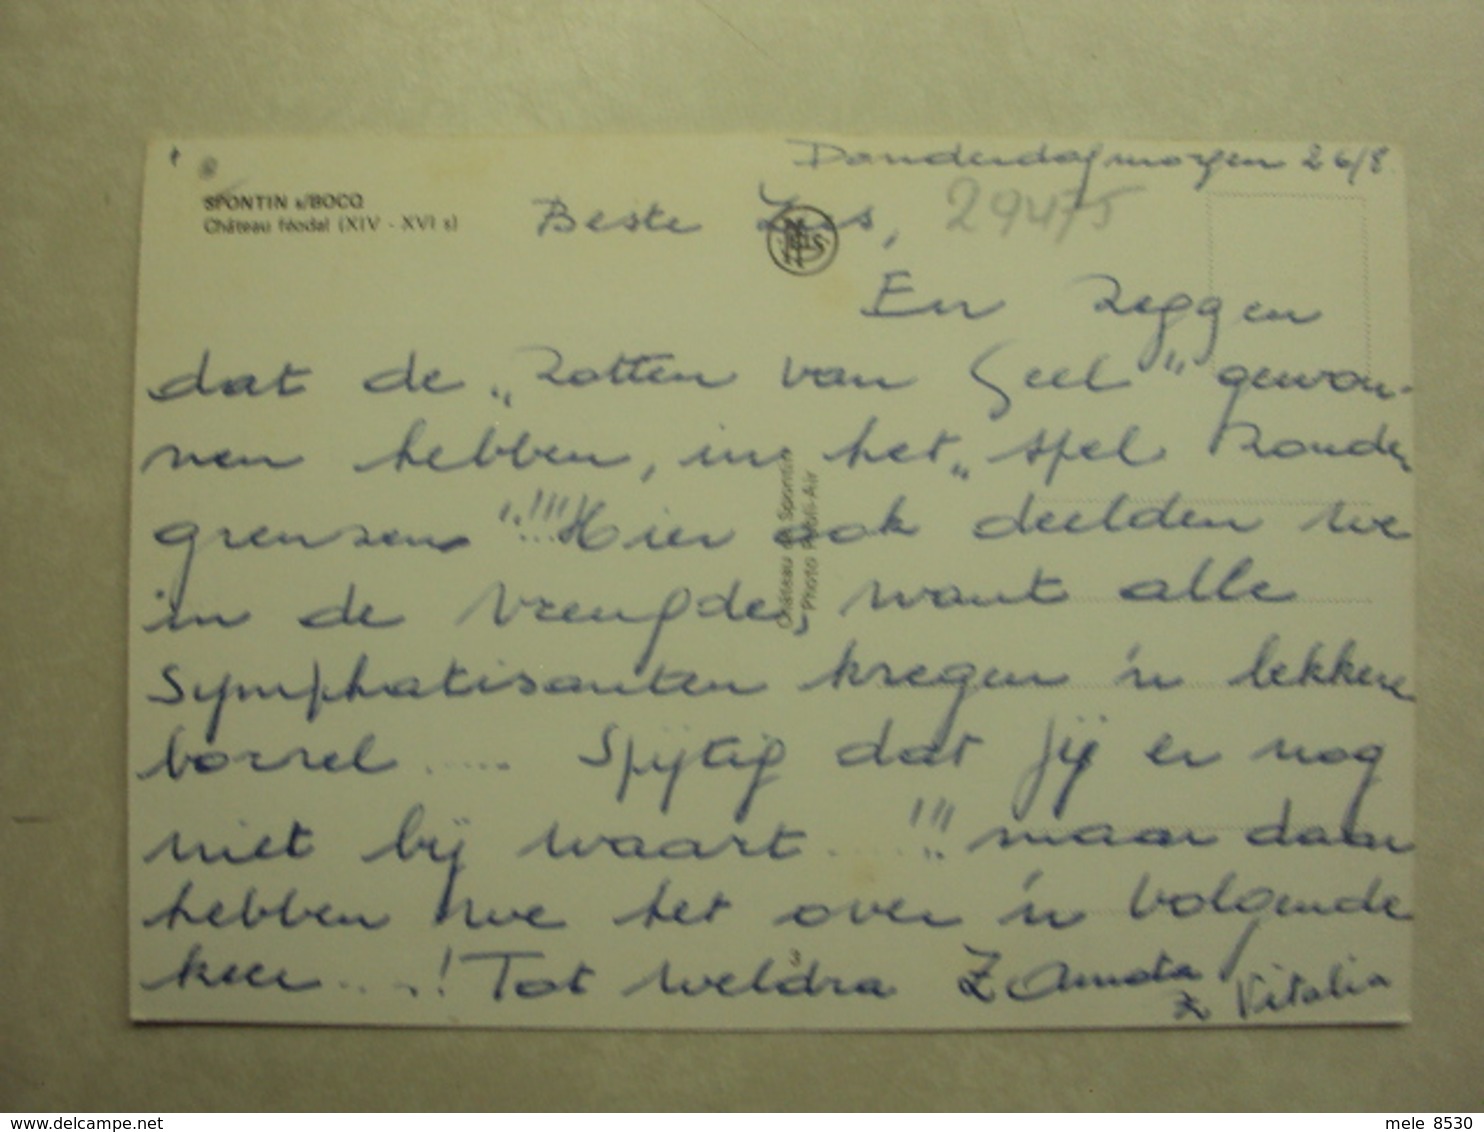 Donderdagmorgen 26/8
SPONTIN s/BOCQ
Château féodal (XIV - XVI s)
Beste Zus,
29475
En zeggen
dat de „zotten van Geel" gewon-
nen hebben, in het „spel zonder
grenzen"!!!! Hier ook deelden we
in de vreugde, want alle
symphatisanten kregen 'n lekkere
borrel ..... Spijtig dat jij er nog
niet bij waart .....!!! maar daar
hebben we het over 'n volgende
keer ....! Tot weldra Z Amata
Z Vitalia
Château de Spontin
Photo Publi-Air
3
delcampe.net
mele 8530